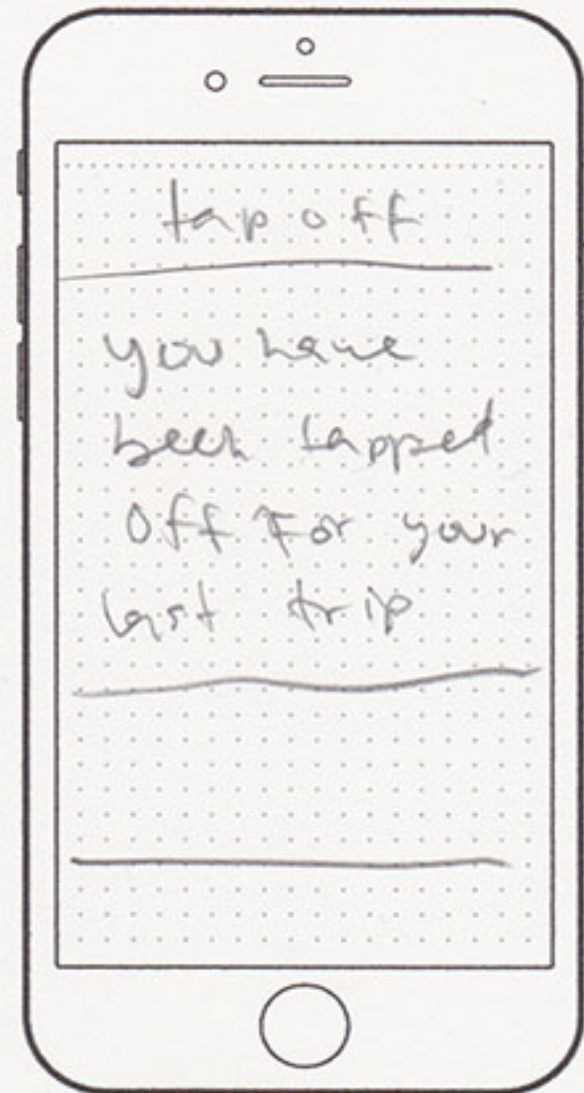 tap off
you have
been tapped
Off For your
last trip